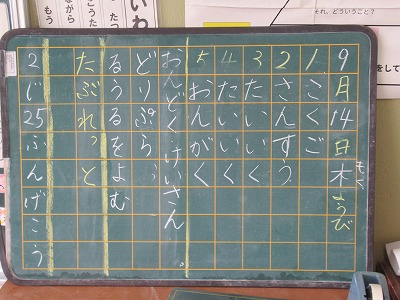 それ、どういうこと？
9月14日木ようび
もく
1 こくご
2 さんすう
3 たいいく
4 たいいく
5 おんがく
おんどく・けいさん。
どりぷら、
るうるをよむ
たぶれっと
2じ25ふんげこう